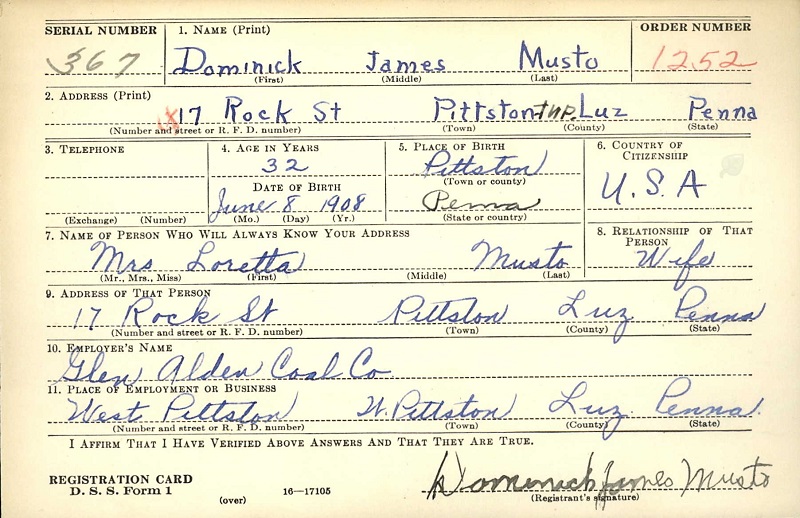 SERIAL NUMBER 1. NAME (Print) ORDER NUMBER
367 Dominick James Musto 1252
(First) (Middle) (Last)
2. ADDRESS (Print)
17 Rock St Pittston Twp. Luz Penna
(Number and street or R. F. D. number) (Town) (County) (State)
3. TELEPHONE 4. AGE IN YEARS 5. PLACE OF BIRTH 6. COUNTRY OF CITIZENSHIP
32 Pittston
(Town or county)
DATE OF BIRTH U.S.A
June 8 1908 Penna
(Exchange) (Number) (Mo.) (Day) (Yr.) (State or country)
7. NAME OF PERSON WHO WILL ALWAYS KNOW YOUR ADDRESS 8. RELATIONSHIP OF THAT PERSON
Mrs Loretta Musto Wife
(Mr., Mrs., Miss) (First) (Middle) (Last)
9. ADDRESS OF THAT PERSON
17 Rock St Pittston Luz Penna
(Number and street or R. F. D. number) (Town) (County) (State)
10. EMPLOYER'S NAME
Glen Alden Coal Co
11. PLACE OF EMPLOYMENT OR BUSINESS
West Pittston W. Pittston Luz. Penna.
(Number and street or R. F. D. number) (Town) (County) (State)
I AFFIRM THAT I HAVE VERIFIED ABOVE ANSWERS AND THAT THEY ARE TRUE.
REGISTRATION CARD Dominick James Musto
D. S. S. Form 1 (over) 16—17105 (Registrant's signature)